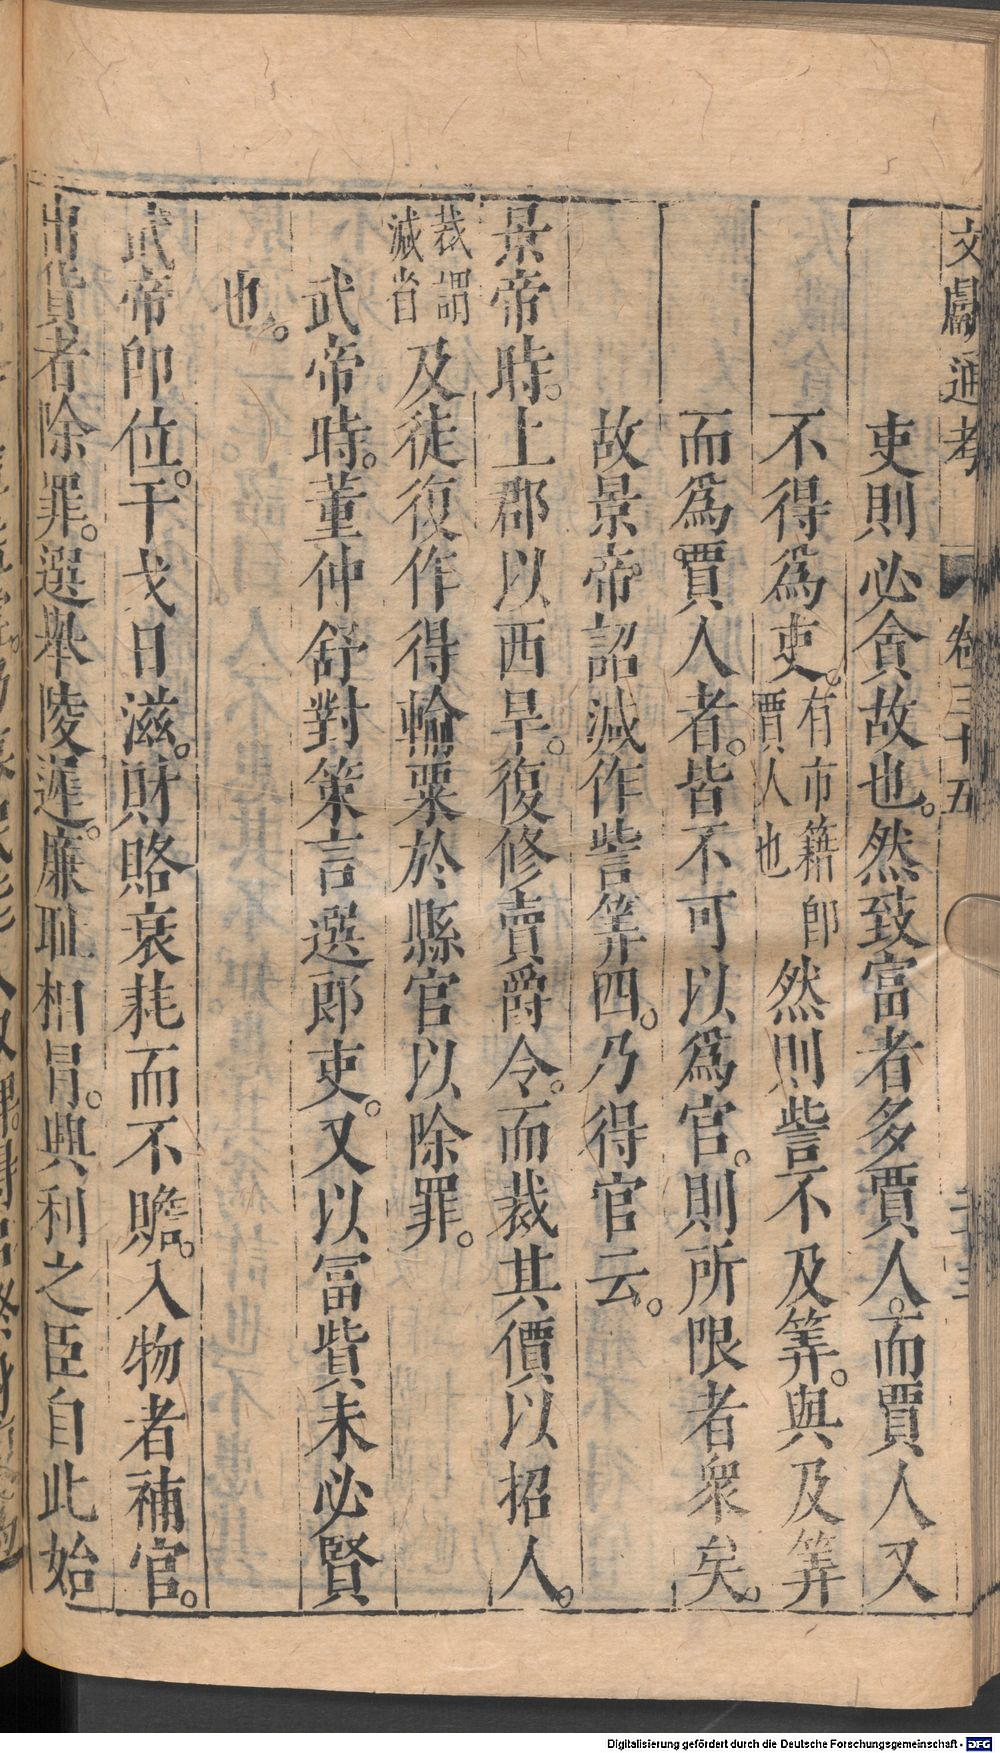 文獻通考 卷三十五 二十三
吏則必貪故也。然致富者多賈人。而賈人又
不得爲吏。有市籍卽賈人也然則訾不及筭。與及筭
而爲賈人者。皆不可以爲官。則所限者衆矣。
故景帝詔減作訾筭四。乃得官云。
景帝時。上郡以西旱。復修賣爵令。而裁其價以招人。
裁謂減省及徒復作得輸粟於縣官以除罪。
武帝時。董仲舒對策言選郎吏。又以冨貲未必賢
也。
武帝卽位。干戈日滋。財賂衰耗而不贍。入物者補官。
出貨者除罪。選舉陵遲。廉耻相冒。興利之臣自此始
Digitalisierung gefördert durch die Deutsche Forschungsgemeinschaft - DFG